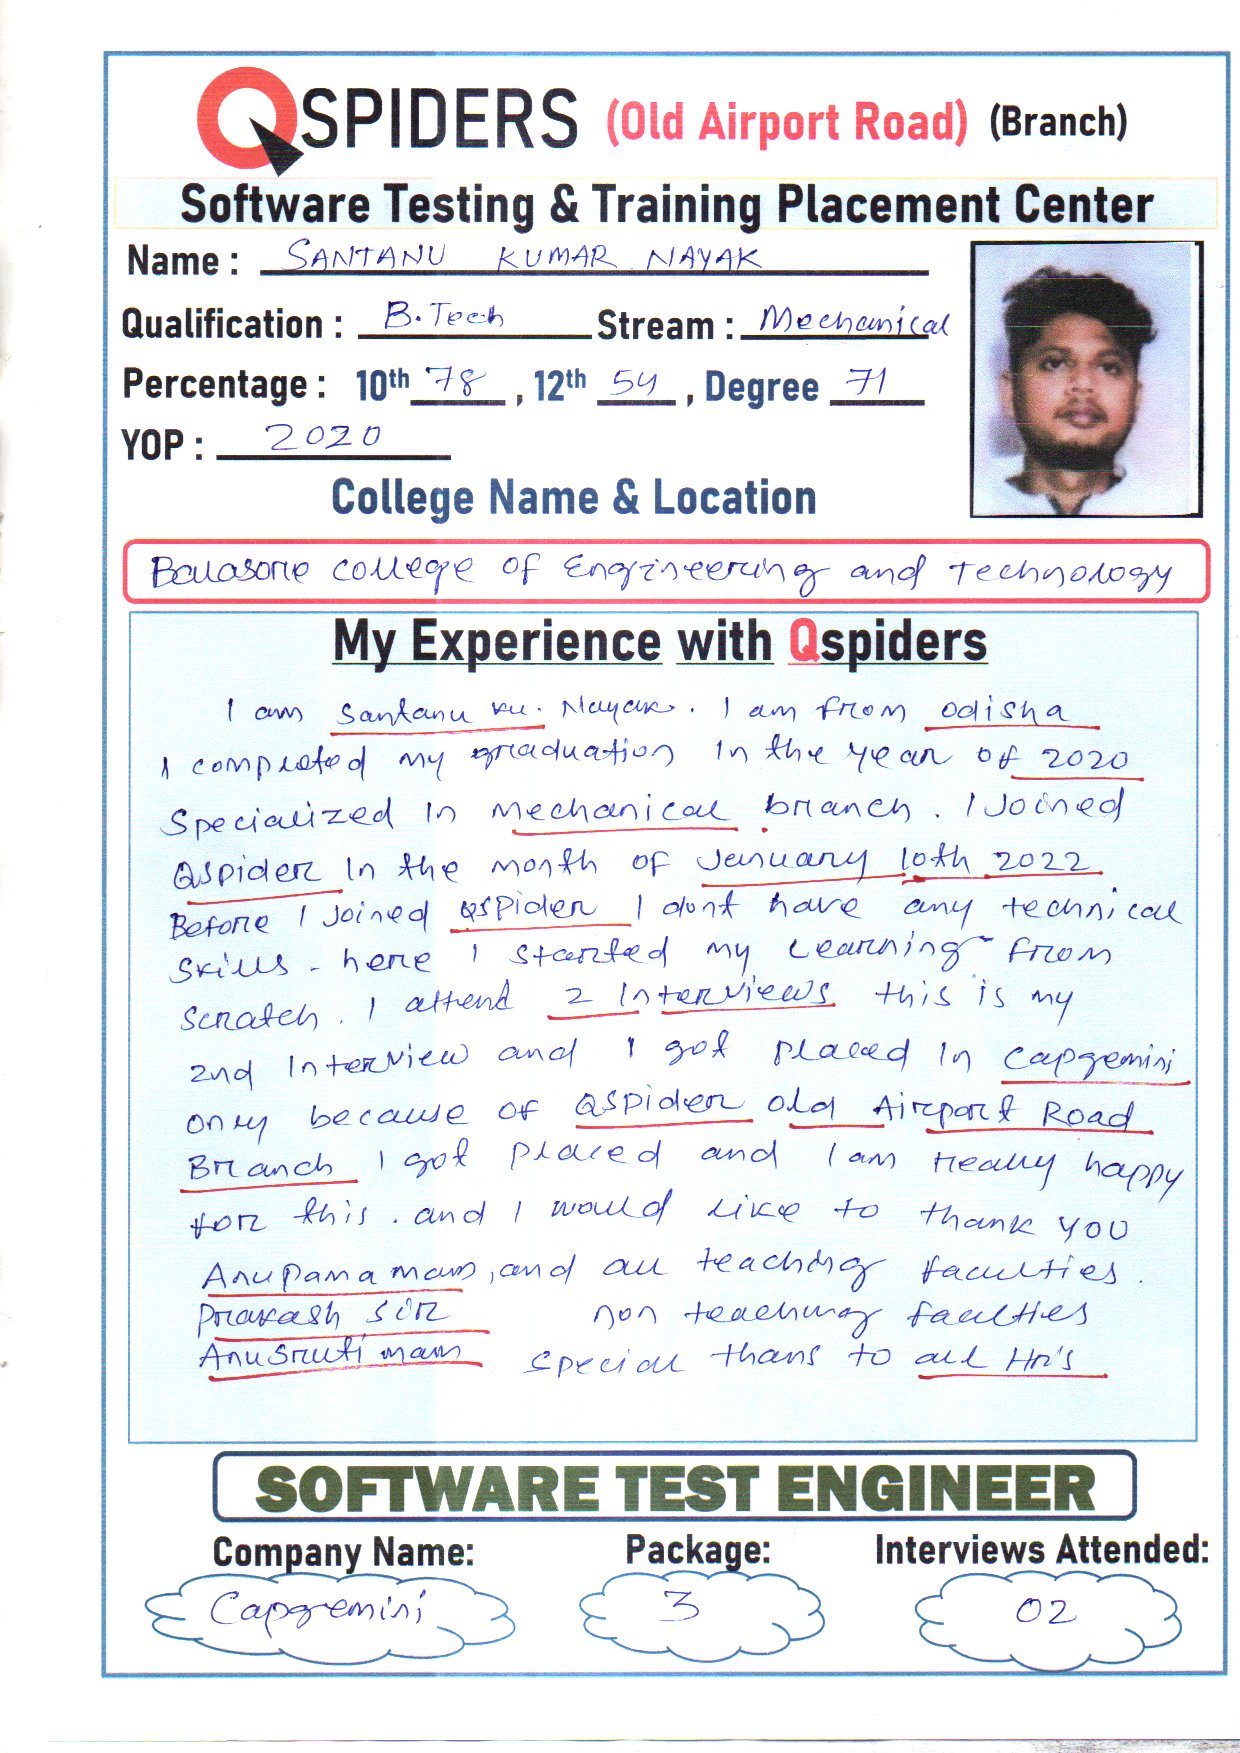 QSPIDERS (Old Airport Road) (Branch)
Software Testing & Training Placement Center
Name : SANTANU KUMAR NAYAK
Qualification : B.Tech Stream : Mechanical
Percentage : 10th 78 , 12th 54 , Degree 71
YOP : 2020
College Name & Location
Balasore college of Engineering and Technology
My Experience with Qspiders
I am Santanu ku. Nayak. I am from odisha
I completed my graduation In the year of 2020
Specialized In Mechanical branch. I Joined
QSpider In the month of January 10th 2022
Before I Joined QSpider I dont have any technical
Skills - here I started my Learning from
Scratch. I attend 2 Interviews this is my
2nd Interview and I got placed In Capgemini
only because of QSpider old Airport Road
Branch I got placed and I am really happy
for this. and I would like to thank you
Anupama mam, and all teaching faculties.
Prakash Sir non teaching faculties
Anusruti mam Special thans to all Hr's
SOFTWARE TEST ENGINEER
Company Name: Package: Interviews Attended:
Capgemini 3 02